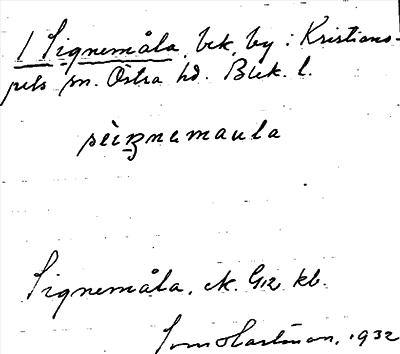 1 Signemåla, bek, by i Kristiano-
pels sn. Östra hd. Blek. l.
sèiꞃnemaula
Signemåla, ek. G12 kb.
1932